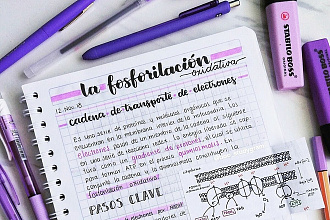 12. Nov. 18
la fosforilación
oxidativa
cadena de transporte de electrones
Es una serie de proteínas y moléculas orgánicas que se
encuentran en la membrana interna de la mitocondria. Los
electrones pasan de un miembro de la cadena al siguiente
en una serie de reacciones redox. La energía liberada se cap-
tura como un gradiente de protones, el cual se utiliza
para formar ATP en el proceso
conjunto, la cadena y la quimiosmosis constituyen la
fosforilación oxidativa
PASOS CLAVE
por
STABILO BOSS
STABILO BOSS